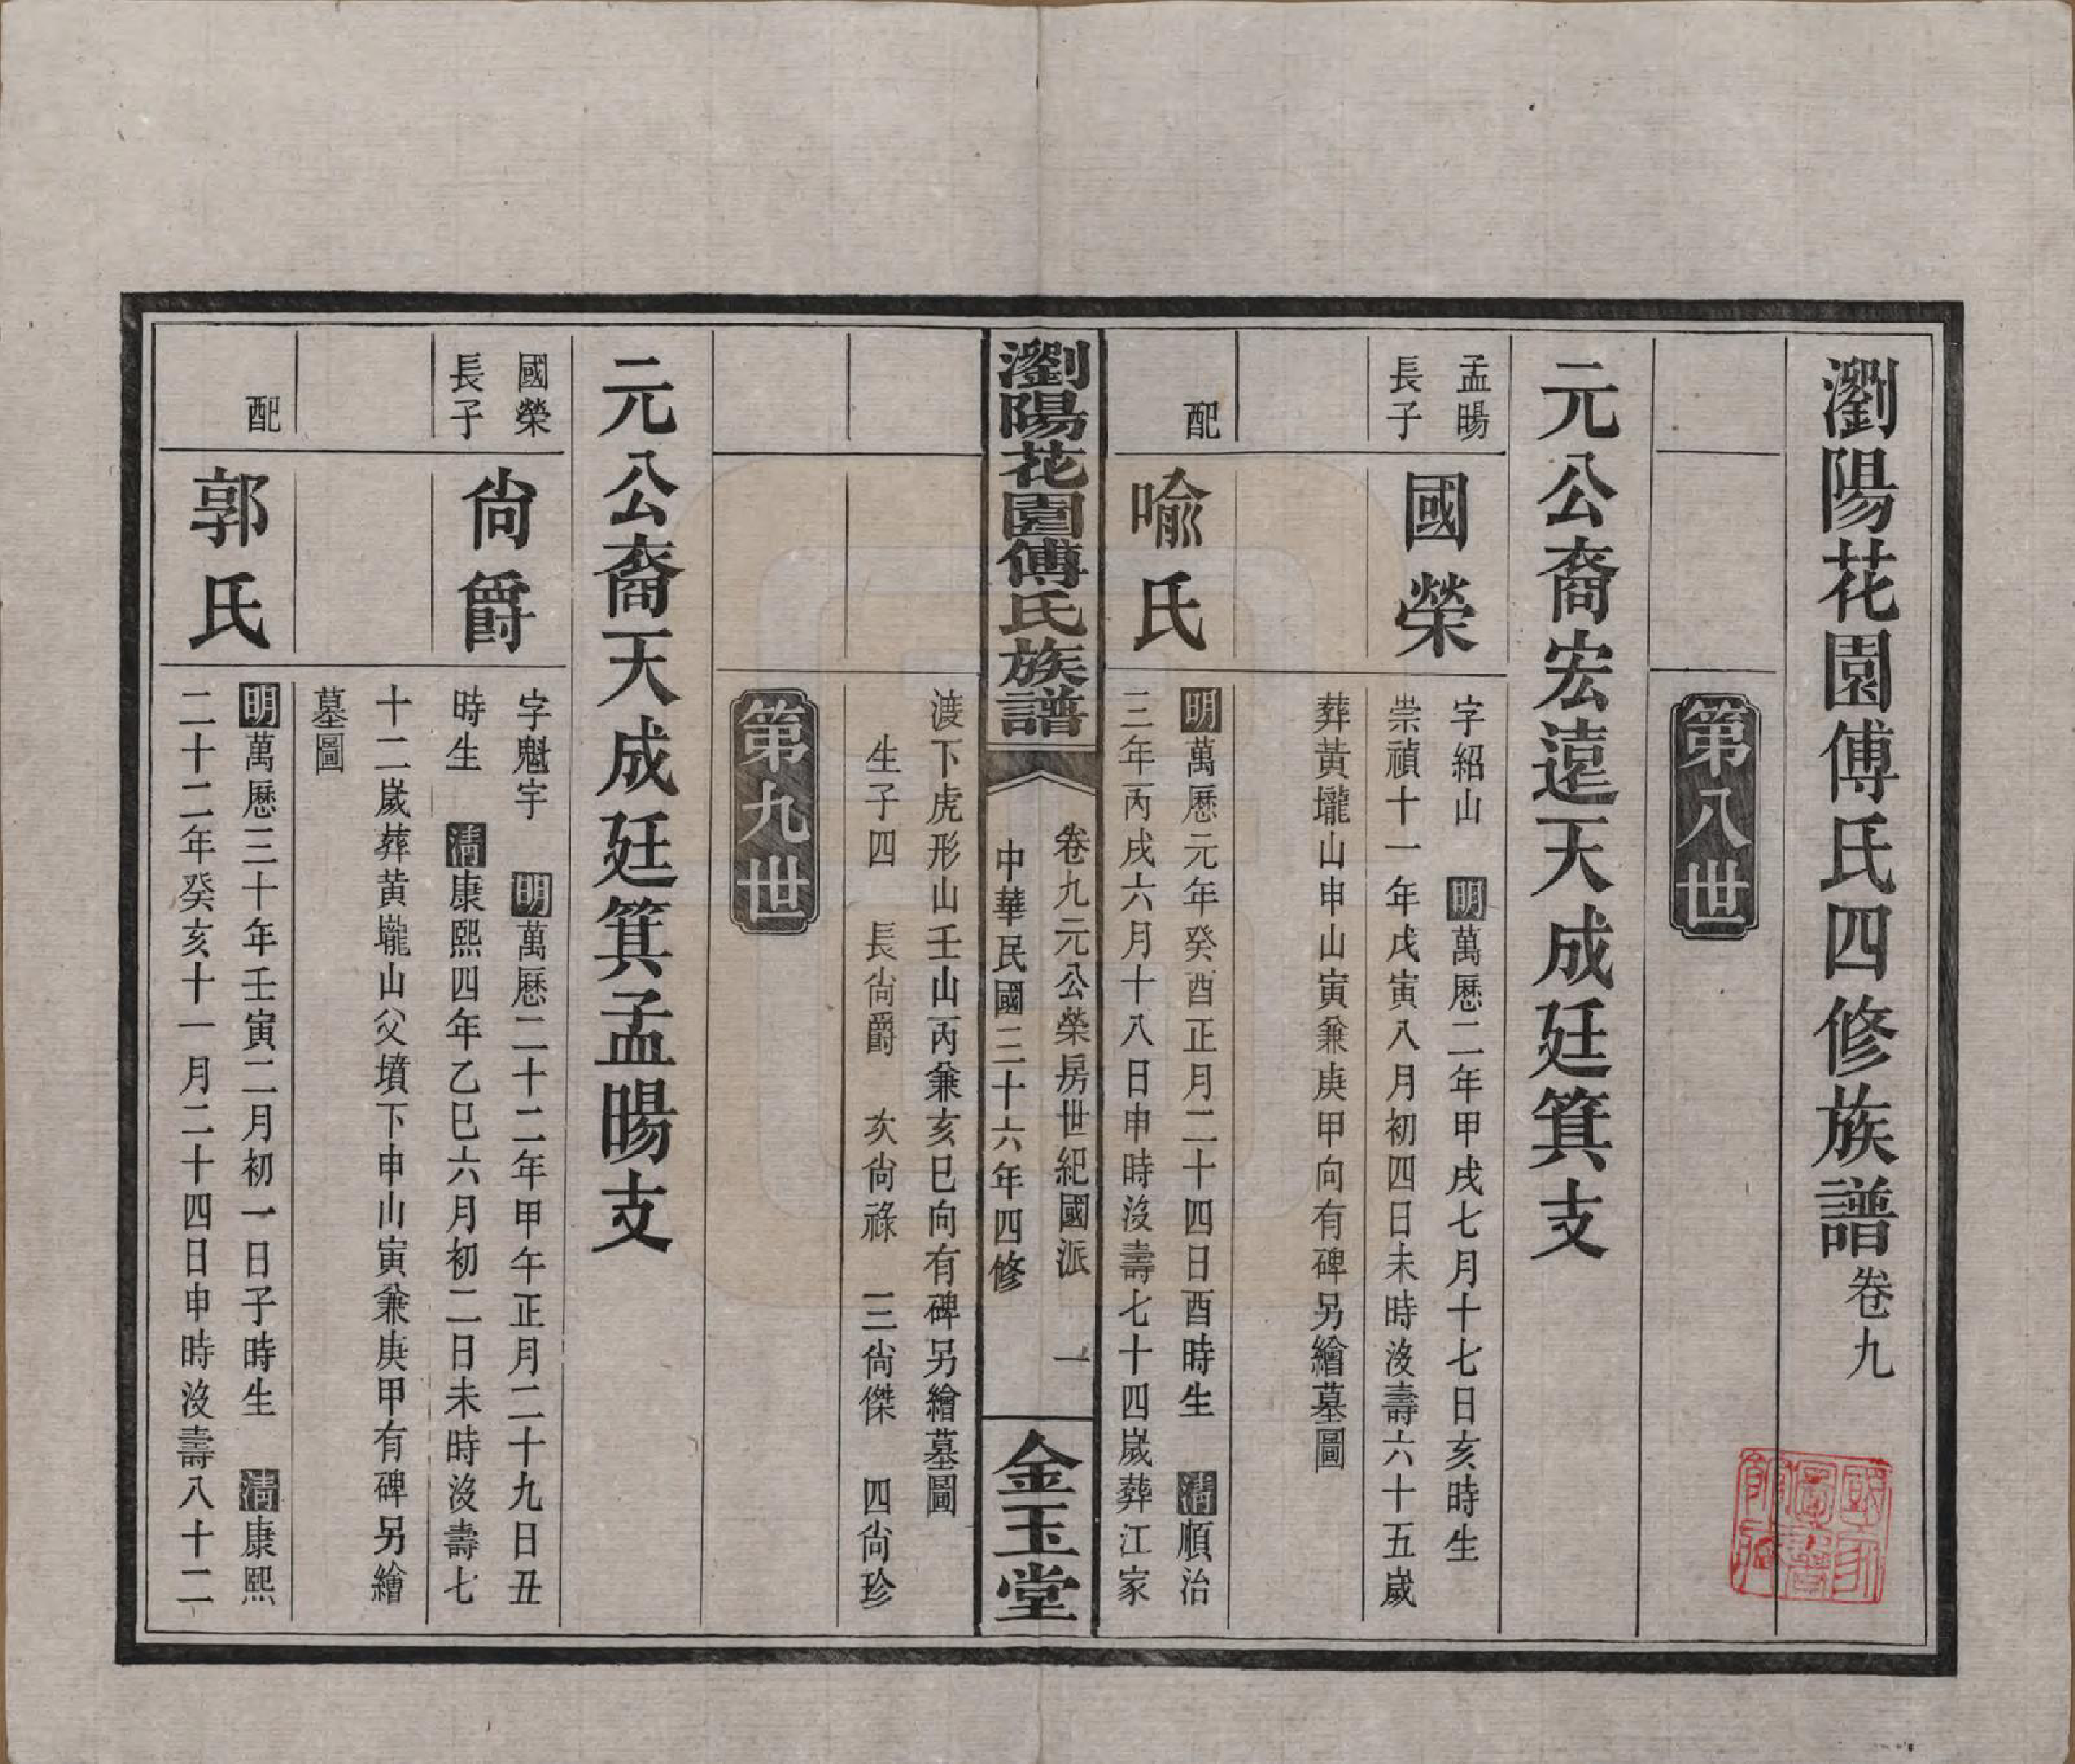 瀏陽花園傅氏四修族譜卷九
第八世
元公裔宏遠天成廷箕支
孟暘
長子
國榮
字紹山　明萬曆二年甲戌七月十七日亥時生
崇禎十一年戊寅八月初四日未時沒壽六十五歲
葬黃壠山申山寅兼庚甲向有碑另繪墓圖
配
喩氏
明萬曆元年癸酉正月二十四日酉時生　清順治
三年丙戌六月十八日申時沒壽七十四歲葬江家
瀏陽花園傅氏族譜
卷九元公榮房世紀國派　一
中華民國三十六年四修
金玉堂
渡下虎形山壬山丙兼亥巳向有碑另繪墓圖
生子四　長尙爵　次尙祿　三尙傑　四尙珍
第九世
元公裔天成廷箕孟暘支
國榮
長子
尙爵
字魁宇　明萬曆二十二年甲午正月二十九日丑
時生　清康熙四年乙巳六月初二日未時沒壽七
十二歲葬黃壠山父墳下申山寅兼庚甲有碑另繪
墓圖
配
郭氏
明萬曆三十年壬寅二月初一日子時生　清康熙
二十二年癸亥十一月二十四日申時沒壽八十二